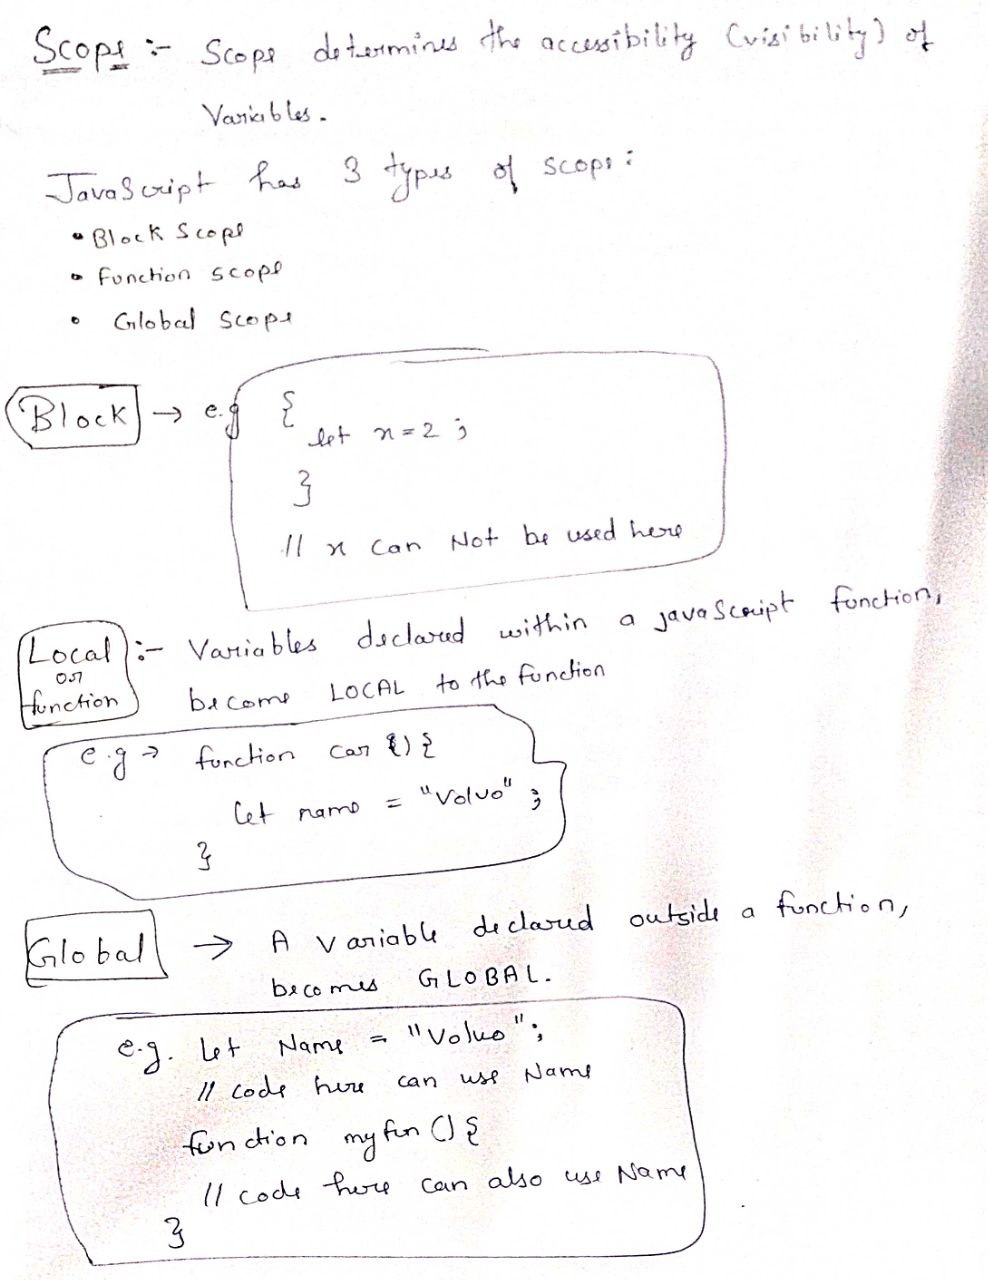 Scope :- Scope determines the accessibility (visibility) of
Variables.
JavaScript has 3 types of scope:
• Block Scope
• function scope
• Global Scope
Block → e.g {
let x = 2 ;
}
// x can Not be used here
Local or function :- Variables declared within a javaScript function,
become LOCAL to the function
e.g → function car () {
let name = "Volvo" ;
}
Global → A variable declared outside a function,
becomes GLOBAL.
e.g. let Name = "Volvo";
// code here can use Name
function myfun () {
// code here can also use Name
}